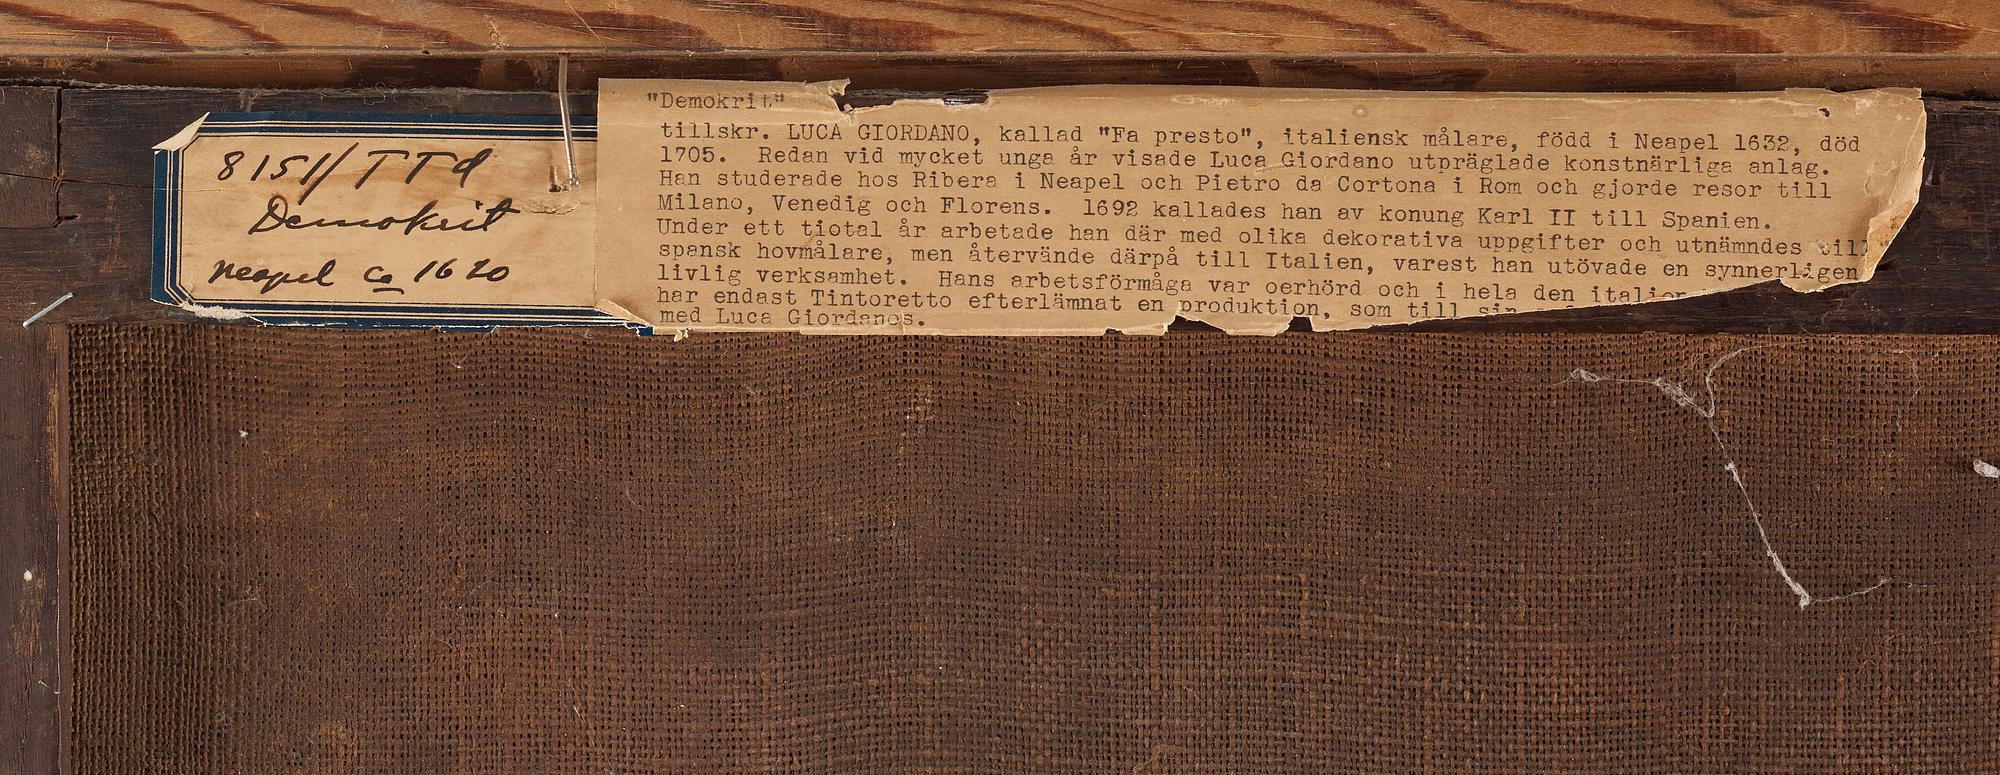 8151/TTd
Demokrit
Neapel ca 1620
"Demokrit"
tillskr. LUCA GIORDANO, kallad "Fa presto", italiensk målare, född i Neapel 1632, död
1705. Redan vid mycket unga år visade Luca Giordano utpräglade konstnärliga anlag.
Han studerade hos Ribera i Neapel och Pietro da Cortona i Rom och gjorde resor till
Milano, Venedig och Florens. 1692 kallades han av konung Karl II till Spanien.
Under ett tiotal år arbetade han där med olika dekorativa uppgifter och utnämndes till
spansk hovmålare, men återvände därpå till Italien, varest han utövade en synnerligen
livlig verksamhet. Hans arbetsförmåga var oerhörd och i hela den
har endast Tintoretto efterlämnat en produktion, som till
med Luca Giordanos.